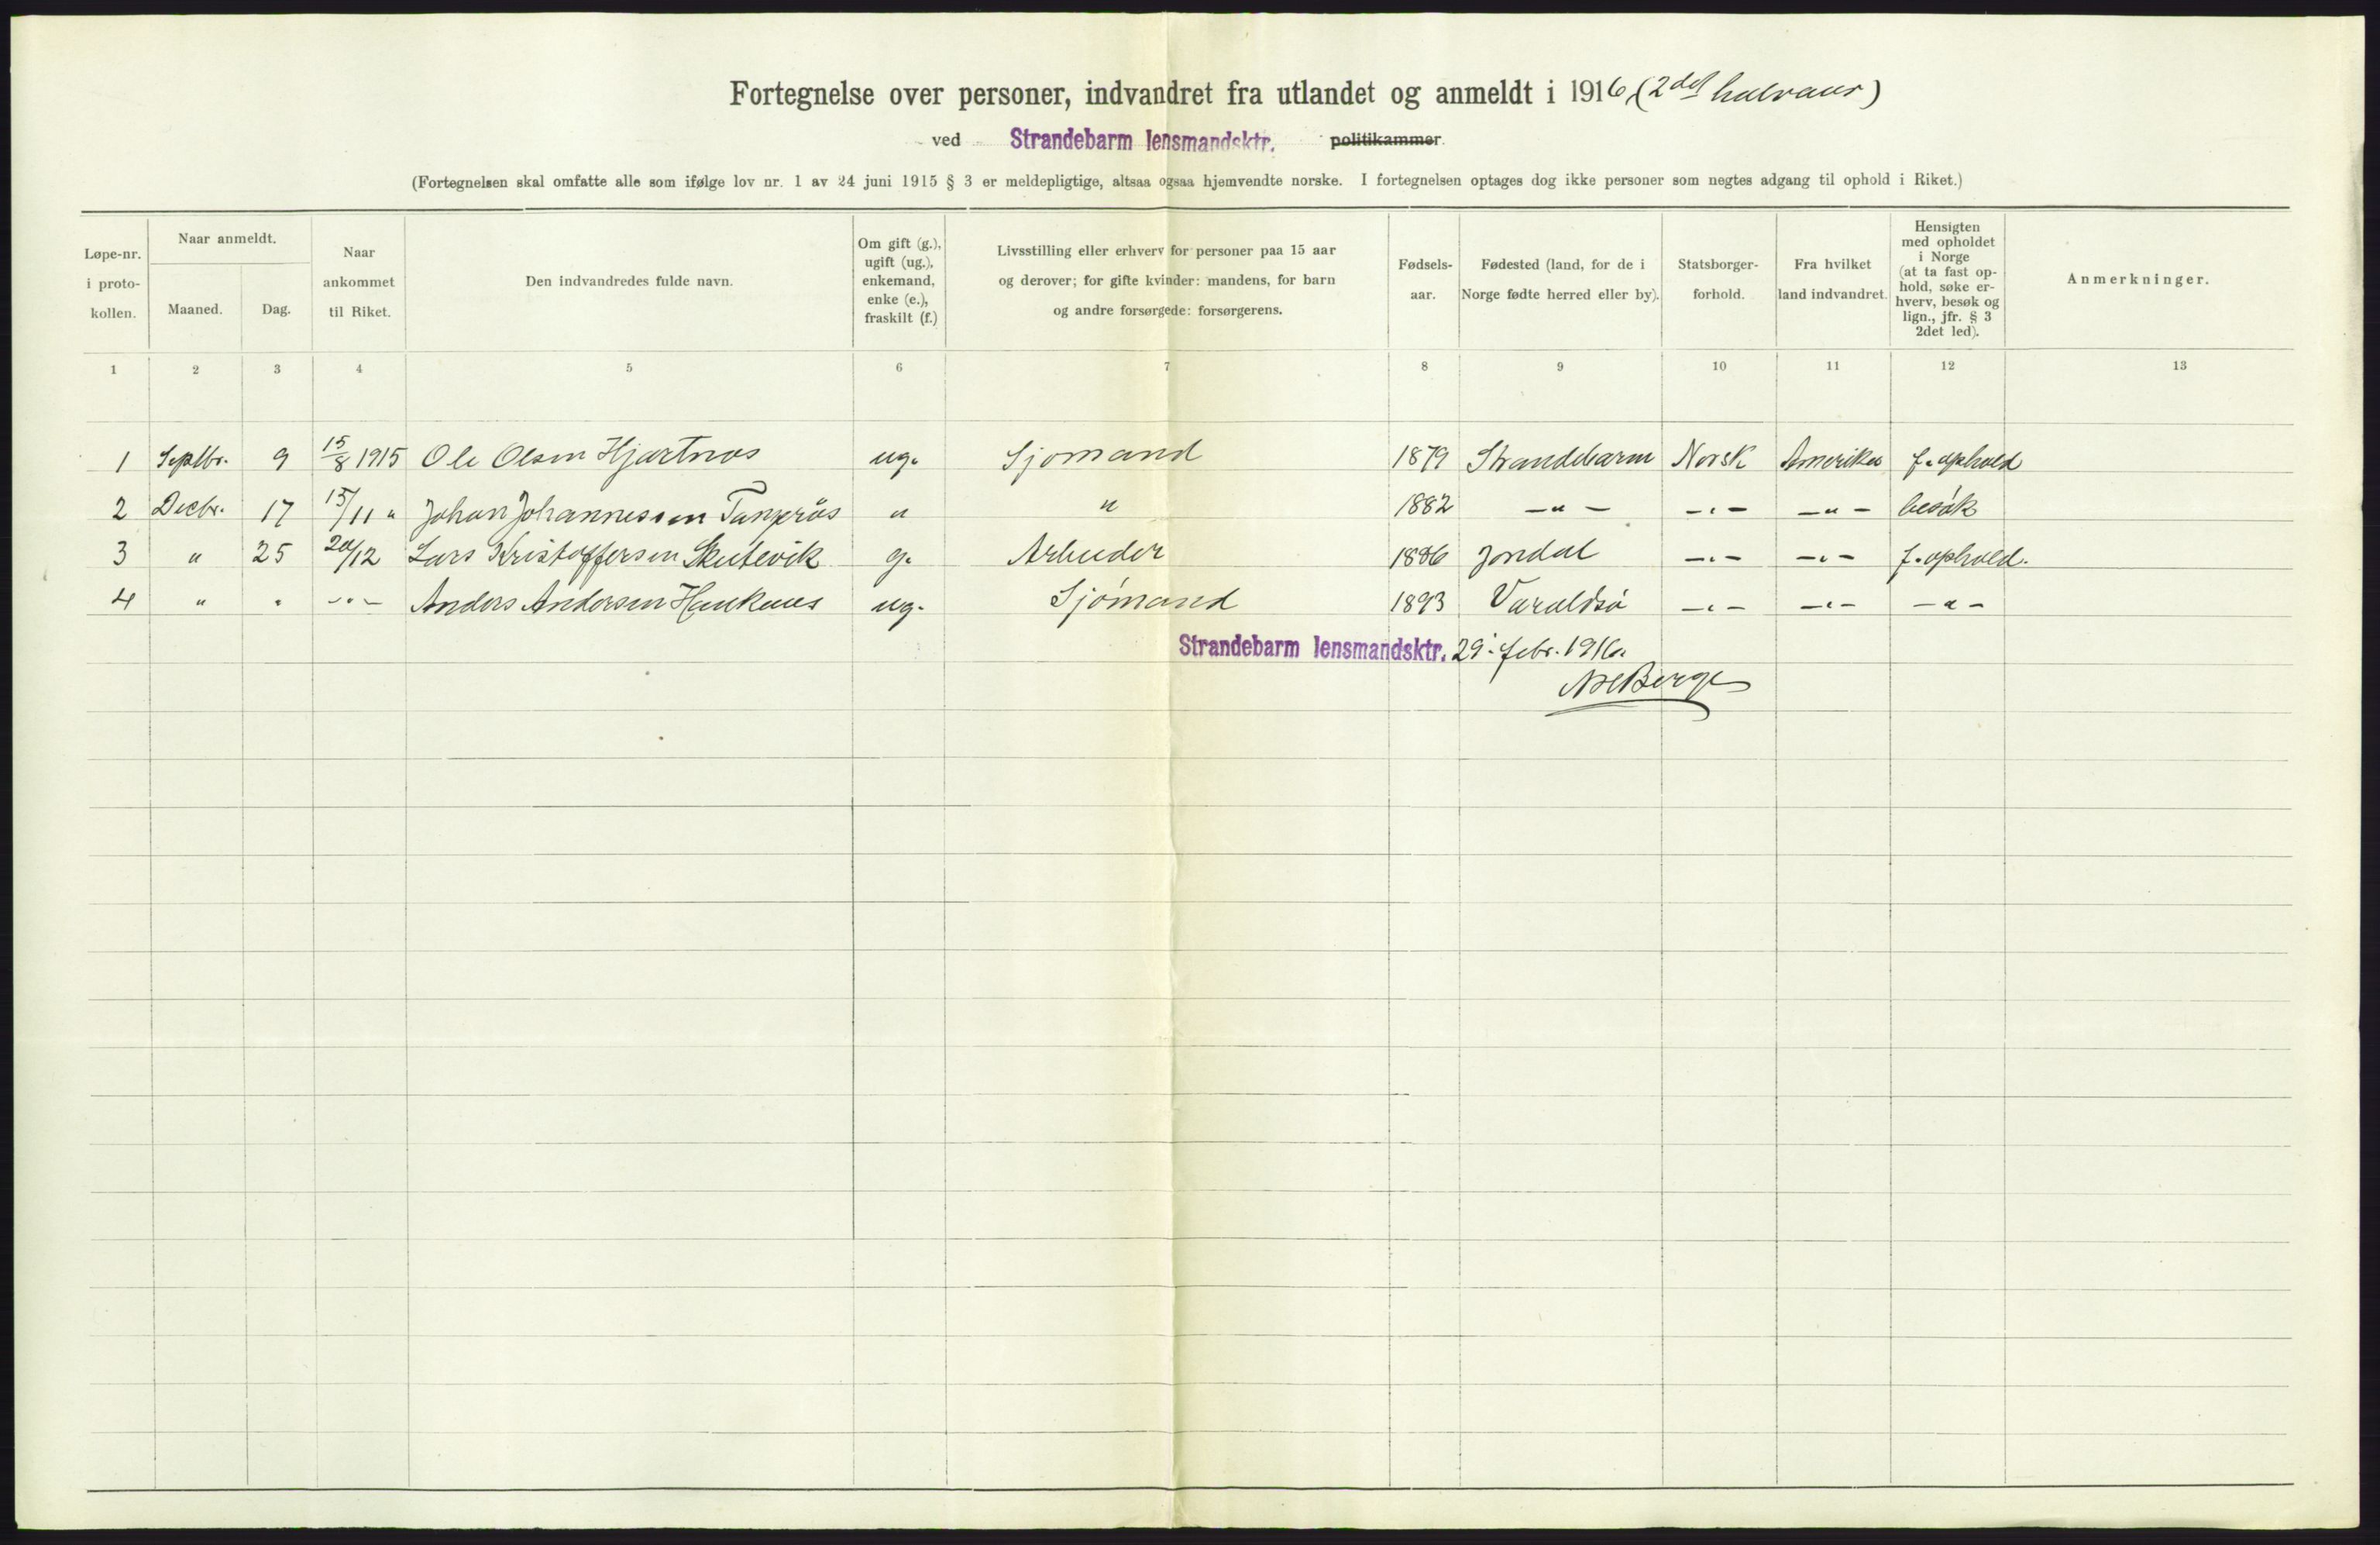 Fortegnelse over personer, indvandret fra utlandet og anmeldt i 1916 (2det halvaar)
ved Strandebarm lensmandsktr. politikammer.
(Fortegnelsen skal omfatte alle som ifølge lov nr. 1 av 24 juni 1915 § 3 er meldepligtige, altsaa ogsaa hjemvendte norske. I fortegnelsen optages dog ikke personer som negtes adgang til ophold i Riket.)
Løpe-nr. i proto-kollen. Naar anmeldt. Maaned. Dag. Naar ankommet til Riket. Den indvandredes fulde navn. Om gift (g.), ugift (ug.), enkemand, enke (e.), fraskilt (f.) Livsstilling eller erhverv for personer paa 15 aar og derover; for gifte kvinder: mandens, for barn og andre forsørgede: forsørgerens. Fødsels-aar. Fødested (land, for de i Norge fødte herred eller by). Statsborger-forhold. Fra hvilket land indvandret. Hensigten med opholdet i Norge (at ta fast op-hold, søke er-hverv, besøk og lign., jfr. § 3 2det led). Anmerkninger.
1 2 3 4 5 6 7 8 9 10 11 12 13
1 Septbr. 9 15/8 1915 Ole Olsen Hjartnes ug. Sjømand 1879 Strandebarm Norsk Amerika f. ophold
2 Decbr. 17 15/11 " Johan Johannessen Tangerås " " 1882 -"- -"- -"- besøk
3 " 25 20/12 Lars Kristoffersen Skutevik g. Arbeider 1886 Jondal -"- -"- f. ophold.
4 " " -"- Anders Andersen Haukanes ug. Sjømand 1893 Varaldsö -"- -"- -"-
Strandebarm lensmandsktr. 29. febr. 1916.
Berge